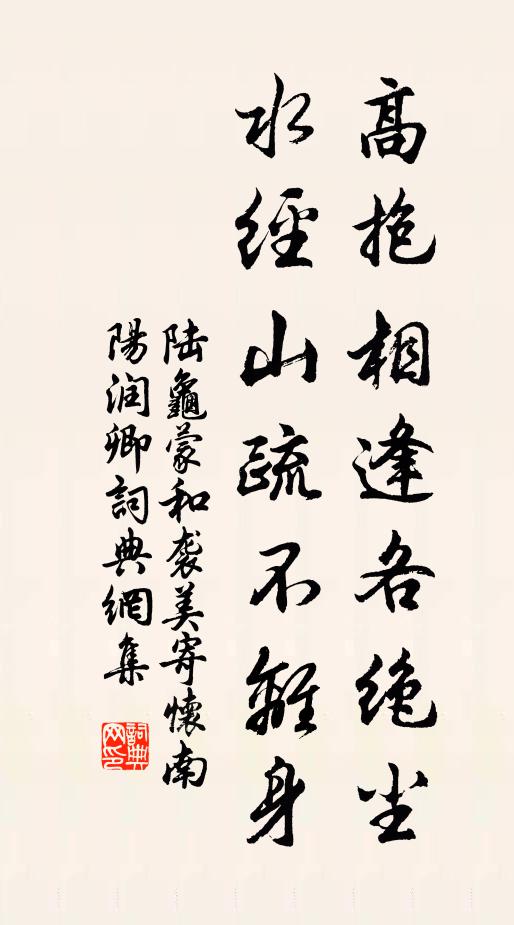 高抱相逢各绝尘
水經山疏不離身
陆龜蒙和袭美寄懷南
陽润卿詞典網集
詞典网印